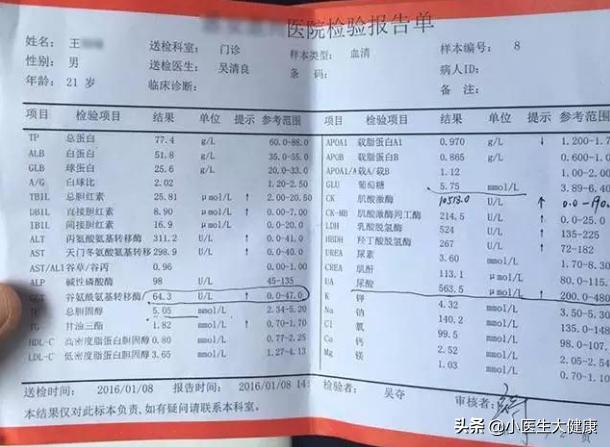 医院检验报告单
姓名: 王
送检科室: 门诊
样本类型: 血清
样本编号: 8
性别: 男
送检医生: 吴清良
条 码:
病人ID:
年龄: 21 岁
临床诊断:
备 注:
项目 检验项目 结果 单位 提示 参考范围
TP 总蛋白 77.4 g/L 60.0-88.0
ALB 白蛋白 51.8 g/L 35.0-55.0
GLB 球蛋白 25.6 g/L 20.0-33.0
A/G 白球比 2.02 1.20-2.50
TBIL 总胆红素 25.81 μmol/L ↑ 2.00-20.50
DBIL 直接胆红素 8.90 μmol/L ↑ 0.00-7.00
IBIL 间接胆红素 16.9 μmol/L 0.0-20.0
ALT 丙氨酸氨基转移酶 311.2 U/L ↑ 0.0-41.0
AST 天门冬氨酸氨基转移 298.9 U/L ↑ 0.0-40.0
AST/ALT 谷草/谷丙 0.96 0.00-1.00
ALP 碱性磷酸酶 98 U/L 45-135
谷氨酰氨基转移酶 64.3 U/L ↑ 0.0-47.0
总胆固醇 5.05 mmol/L 2.34-5.20
TG 甘油三酯 1.82 mmol/L ↑ 0.70-1.70
HDL-C 高密度脂蛋白胆固醇 0.80 mmol/L 0.77-2.25
LDL-C 低密度脂蛋白胆固醇 3.65 mmol/L 1.27-4.13
项目 检验项目 结果 单位 提示 参考范围
APOA1 载脂蛋白A1 0.970 g/L ↓ 1.200-1.7
APOB 载脂蛋白B 0.865 g/L 0.600-1.0
APOA1/A 载A/载B 1.12 1.00-2.
GLU 葡萄糖 5.75 mmol/L 3.89-6.4
CK 肌酸激酶 10513.0 U/L ↑ 0.0-190.
CK-MB 肌酸激酶同工酶 214.5 U/L ↑ 0.0-25.0
LDH 乳酸脱氢酶 524 U/L ↑ 135-225
HBDH 羟丁酸脱氢酶 267 U/L ↑ 72-182
UREA 尿素 3.60 mmol/L 1.70-8.30
CREA 肌酐 113.1 μmol/L 80.0-115.
UA 尿酸 563.5 μmol/L ↑ 200.0-480
K 钾 4.32 mmol/L
Na 钠 140.2 mmol/L 135.0-148
Cl 氯 99.5 mmol/L 98.0-107.
Ca 钙 2.52 mmol/L 2.05-2.54
Mg 镁 1.03 mmol/L 0.70-1.10
送检时间: 2016/01/08 报告时间: 2016/01/08 14:
检验者: 吴夺
审核者:
本结果仅对此标本负责,如有疑问请联系本科室。
页
头条 @小医生大健康